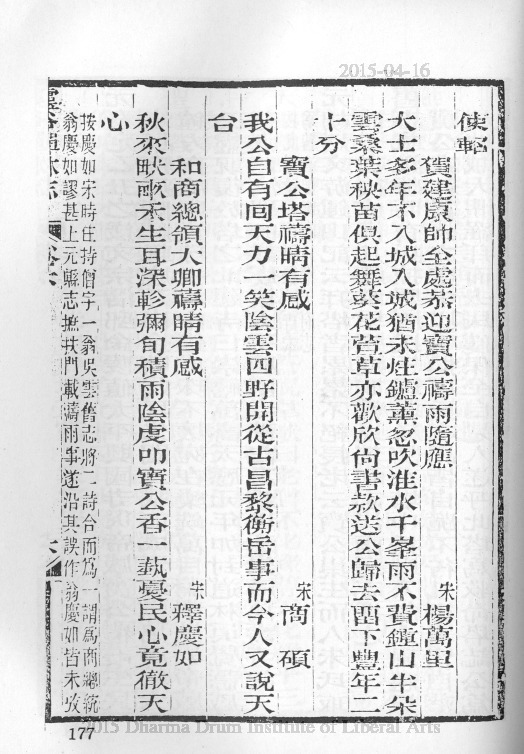 2015-04-16
使軺
賀建康帥余處恭迎寶公禱雨隨應 宋 楊萬里
大士多年不入城入城猶未炷鑪薰忽吹淮水千峯雨不費鍾山半朵
雲桑葉秧苗俱起舞菱花萱草亦歡欣尙書款送公歸去畱下豐年二
十分
寶公塔禱晴有感 宋 商碩
我公自有囘天力一笑陰雲四野開從古昌黎衡岳事而今人又說天
台
和商總領大卿禱晴有感 宋 釋慶如
秋來畎畝禾生耳深軫彌旬積雨陰虔叩寶公香一爇憂民心竟徹天
心
按慶如宋時住持僧字一翁吳雲舊志將二詩合而爲一謂爲商總統
翁慶如謬甚上元縣志摭扶門載禱雨事遂沿其誤作翁慶如皆未攷
177
2015 Dharma Drum Institute of Liberal Arts